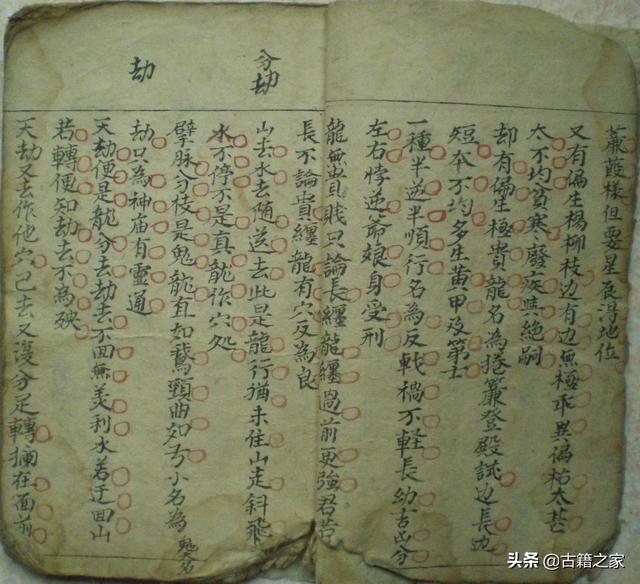 分劫
劫
蒹葭樣但要星辰得地位
又有偏生楊柳枝边有边無極乖異偏枯太甚
太不均貧寒廢疾與絕嗣
却有偏生極貴龍名為捲簾登殿試边長边
短夲不均多生黄甲及第士
一種半逆半順行名為反戟禍不軽長幼吉凶分
左右悖逆爺娘身受刑
龍無貴賎只論長纏龍纏過前更強君若
長不論貴纏龍有穴反為良
山去水去随送去此是龍行猶未住山走斜飛
水不停不是真龍作穴処
擘脉分枝是鬼龍直如鵞頸曲如弓小名為
劫只為神庙有靈通
天劫便是龍分去劫去不回無美利水若迂回山
若轉便知劫去不為殃
天劫又去作他穴已去又復分足轉揷在面前
头条 @古籍之家